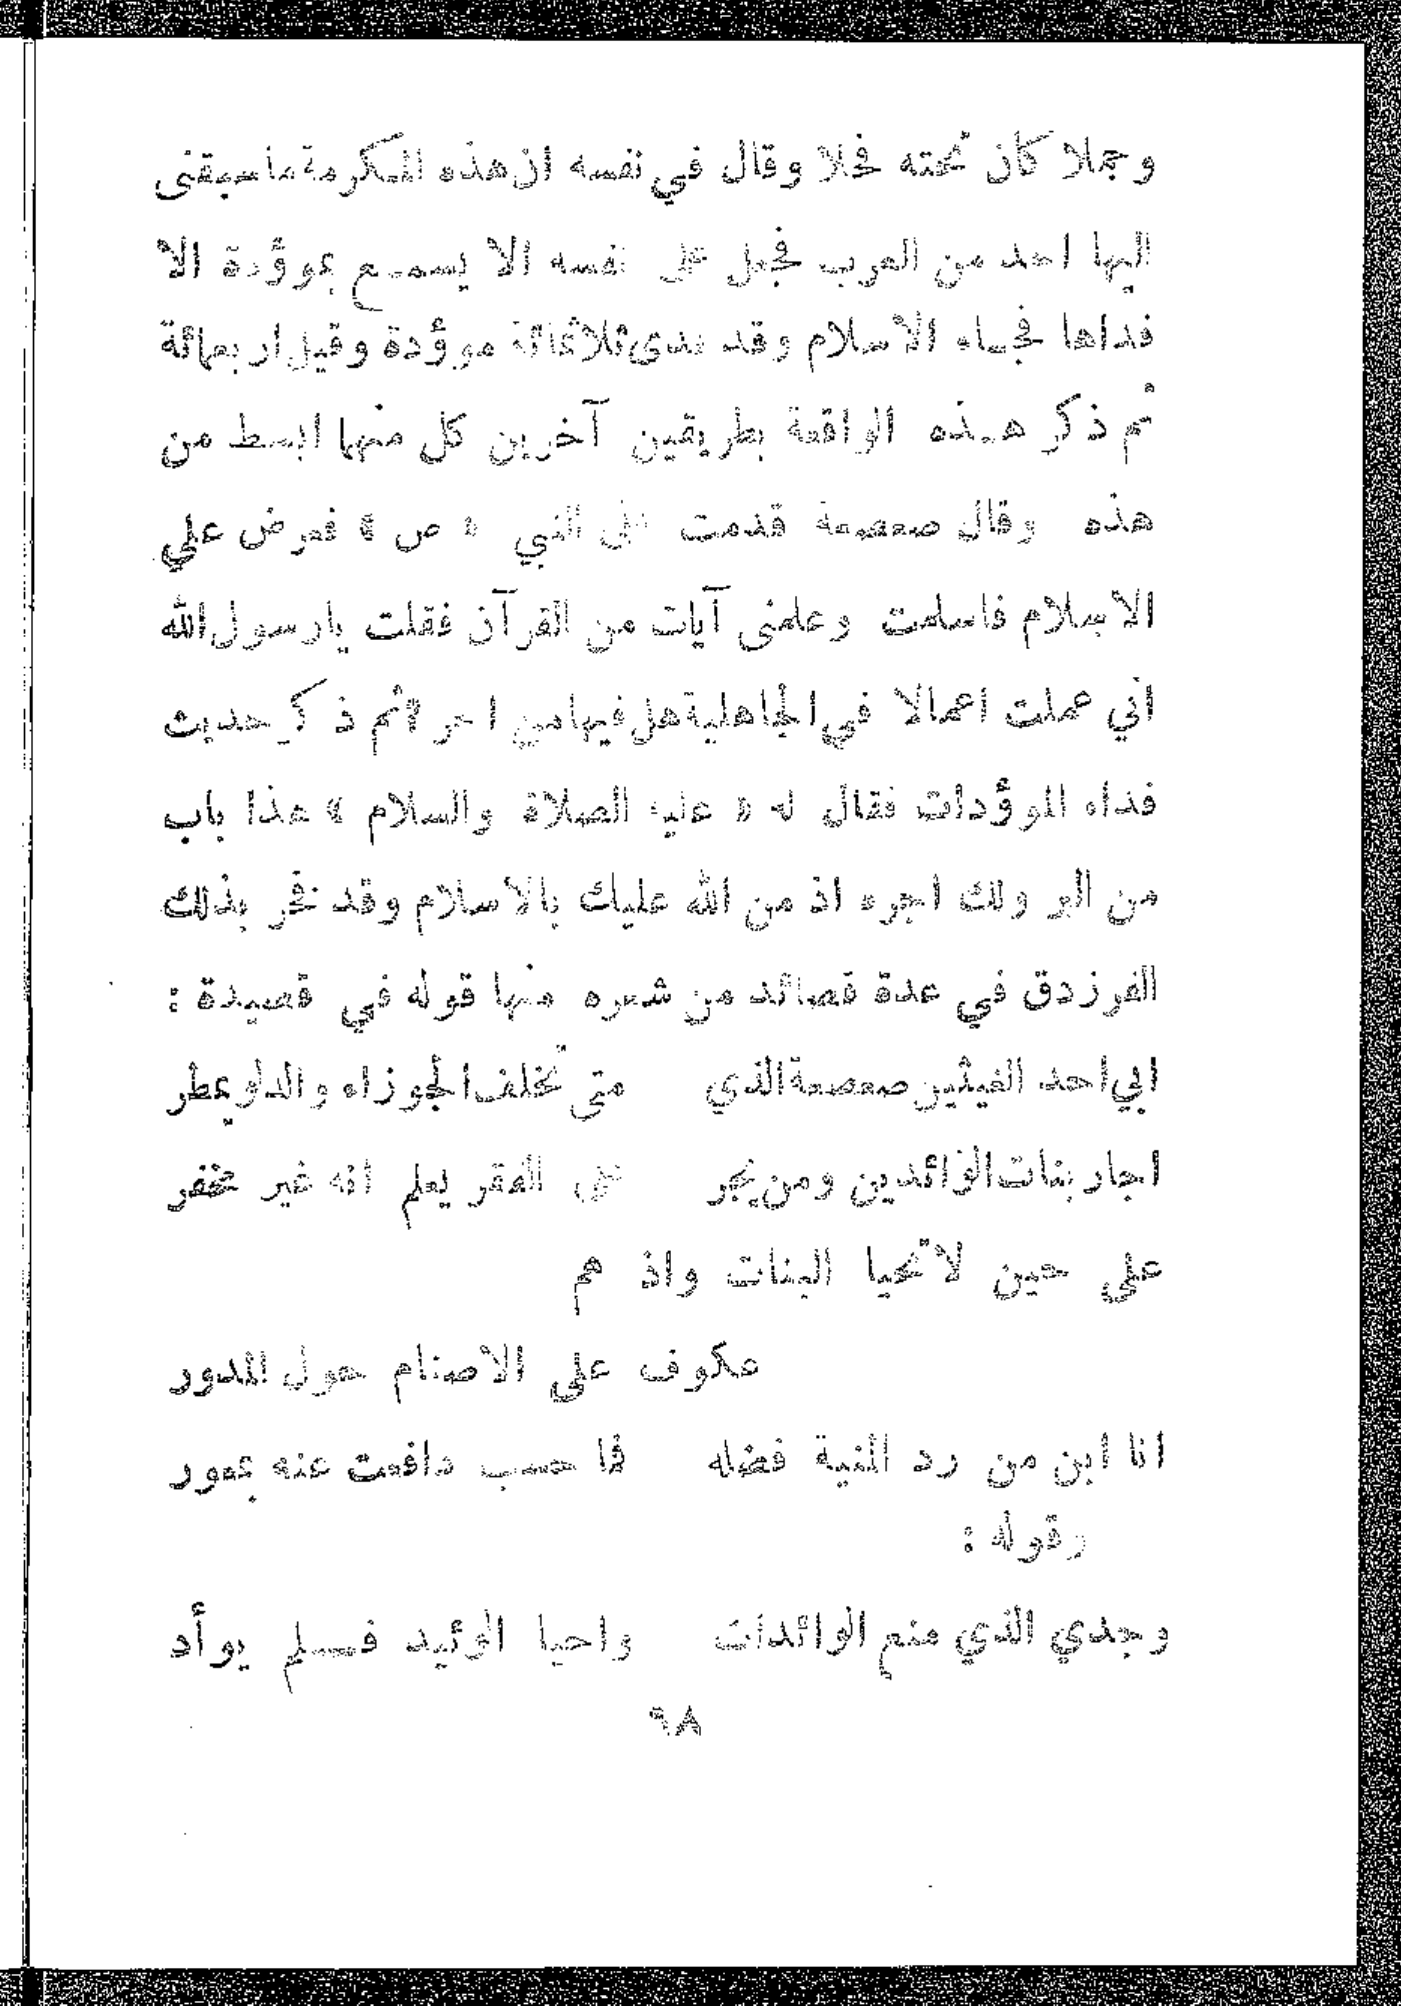 وجملا كان تحته فحلا وقال في نفسه ان هذه المكرمة ما سبقنى
اليها احد من العرب فجعل على نفسه الا يسمع بموؤدة الا
فداها فجاء الاسلام وقد فدى ثلاثمائة موؤدة وقيل اربعمائة
ثم ذكر هذه الواقعة بطريقين آخرين كل منهما ابسط من
هذه وقال صعصعة قدمت على النبي « ص » فعرض علي
الاسلام فاسلمت وعلمنى آيات من القرآن فقلت يا رسول الله
أني عملت اعمالا في الجاهلية هل فيها من اجر ؟ ثم ذكر حديث
فداه الموؤدات فقال له « عليه الصلاة والسلام » هذا باب
من البر ولك اجره اذ من الله عليك بالاسلام وقد فخر بذلك
الفرزدق في عدة قصائد من شعره منها قوله في قصيدة :
ابي احد الغيثين صعصعة الذي متى تخلف الجوزاء والدلو يمطر
اجار بنات الوائدين ومن يجر على الفقر يعلم انه غير مخفر
على حين لا تحيا البنات واذ هم
عكوف على الاصنام حول المدور
انا ابن من رد المنية فضله فما حسب دافعت عنه بمعور
وقوله :
وجدي الذي منع الوائدات واحيا الوئيد فلم يوأد
٩٨